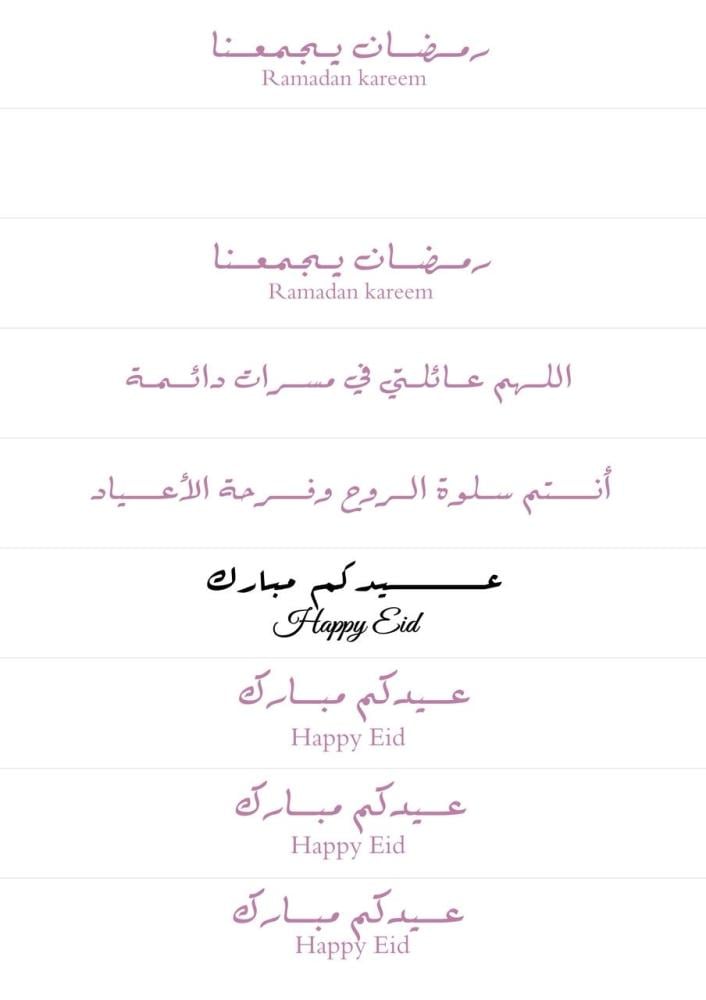 رمضان يجمعنا
Ramadan kareem
رمضان يجمعنا
Ramadan kareem
اللهم عائلتي في مسرات دائمة
أنتم سلوة الروح وفرحة الأعياد
عيدكم مبارك
Happy Eid
عيدكم مبارك
Happy Eid
عيدكم مبارك
Happy Eid
عيدكم مبارك
Happy Eid